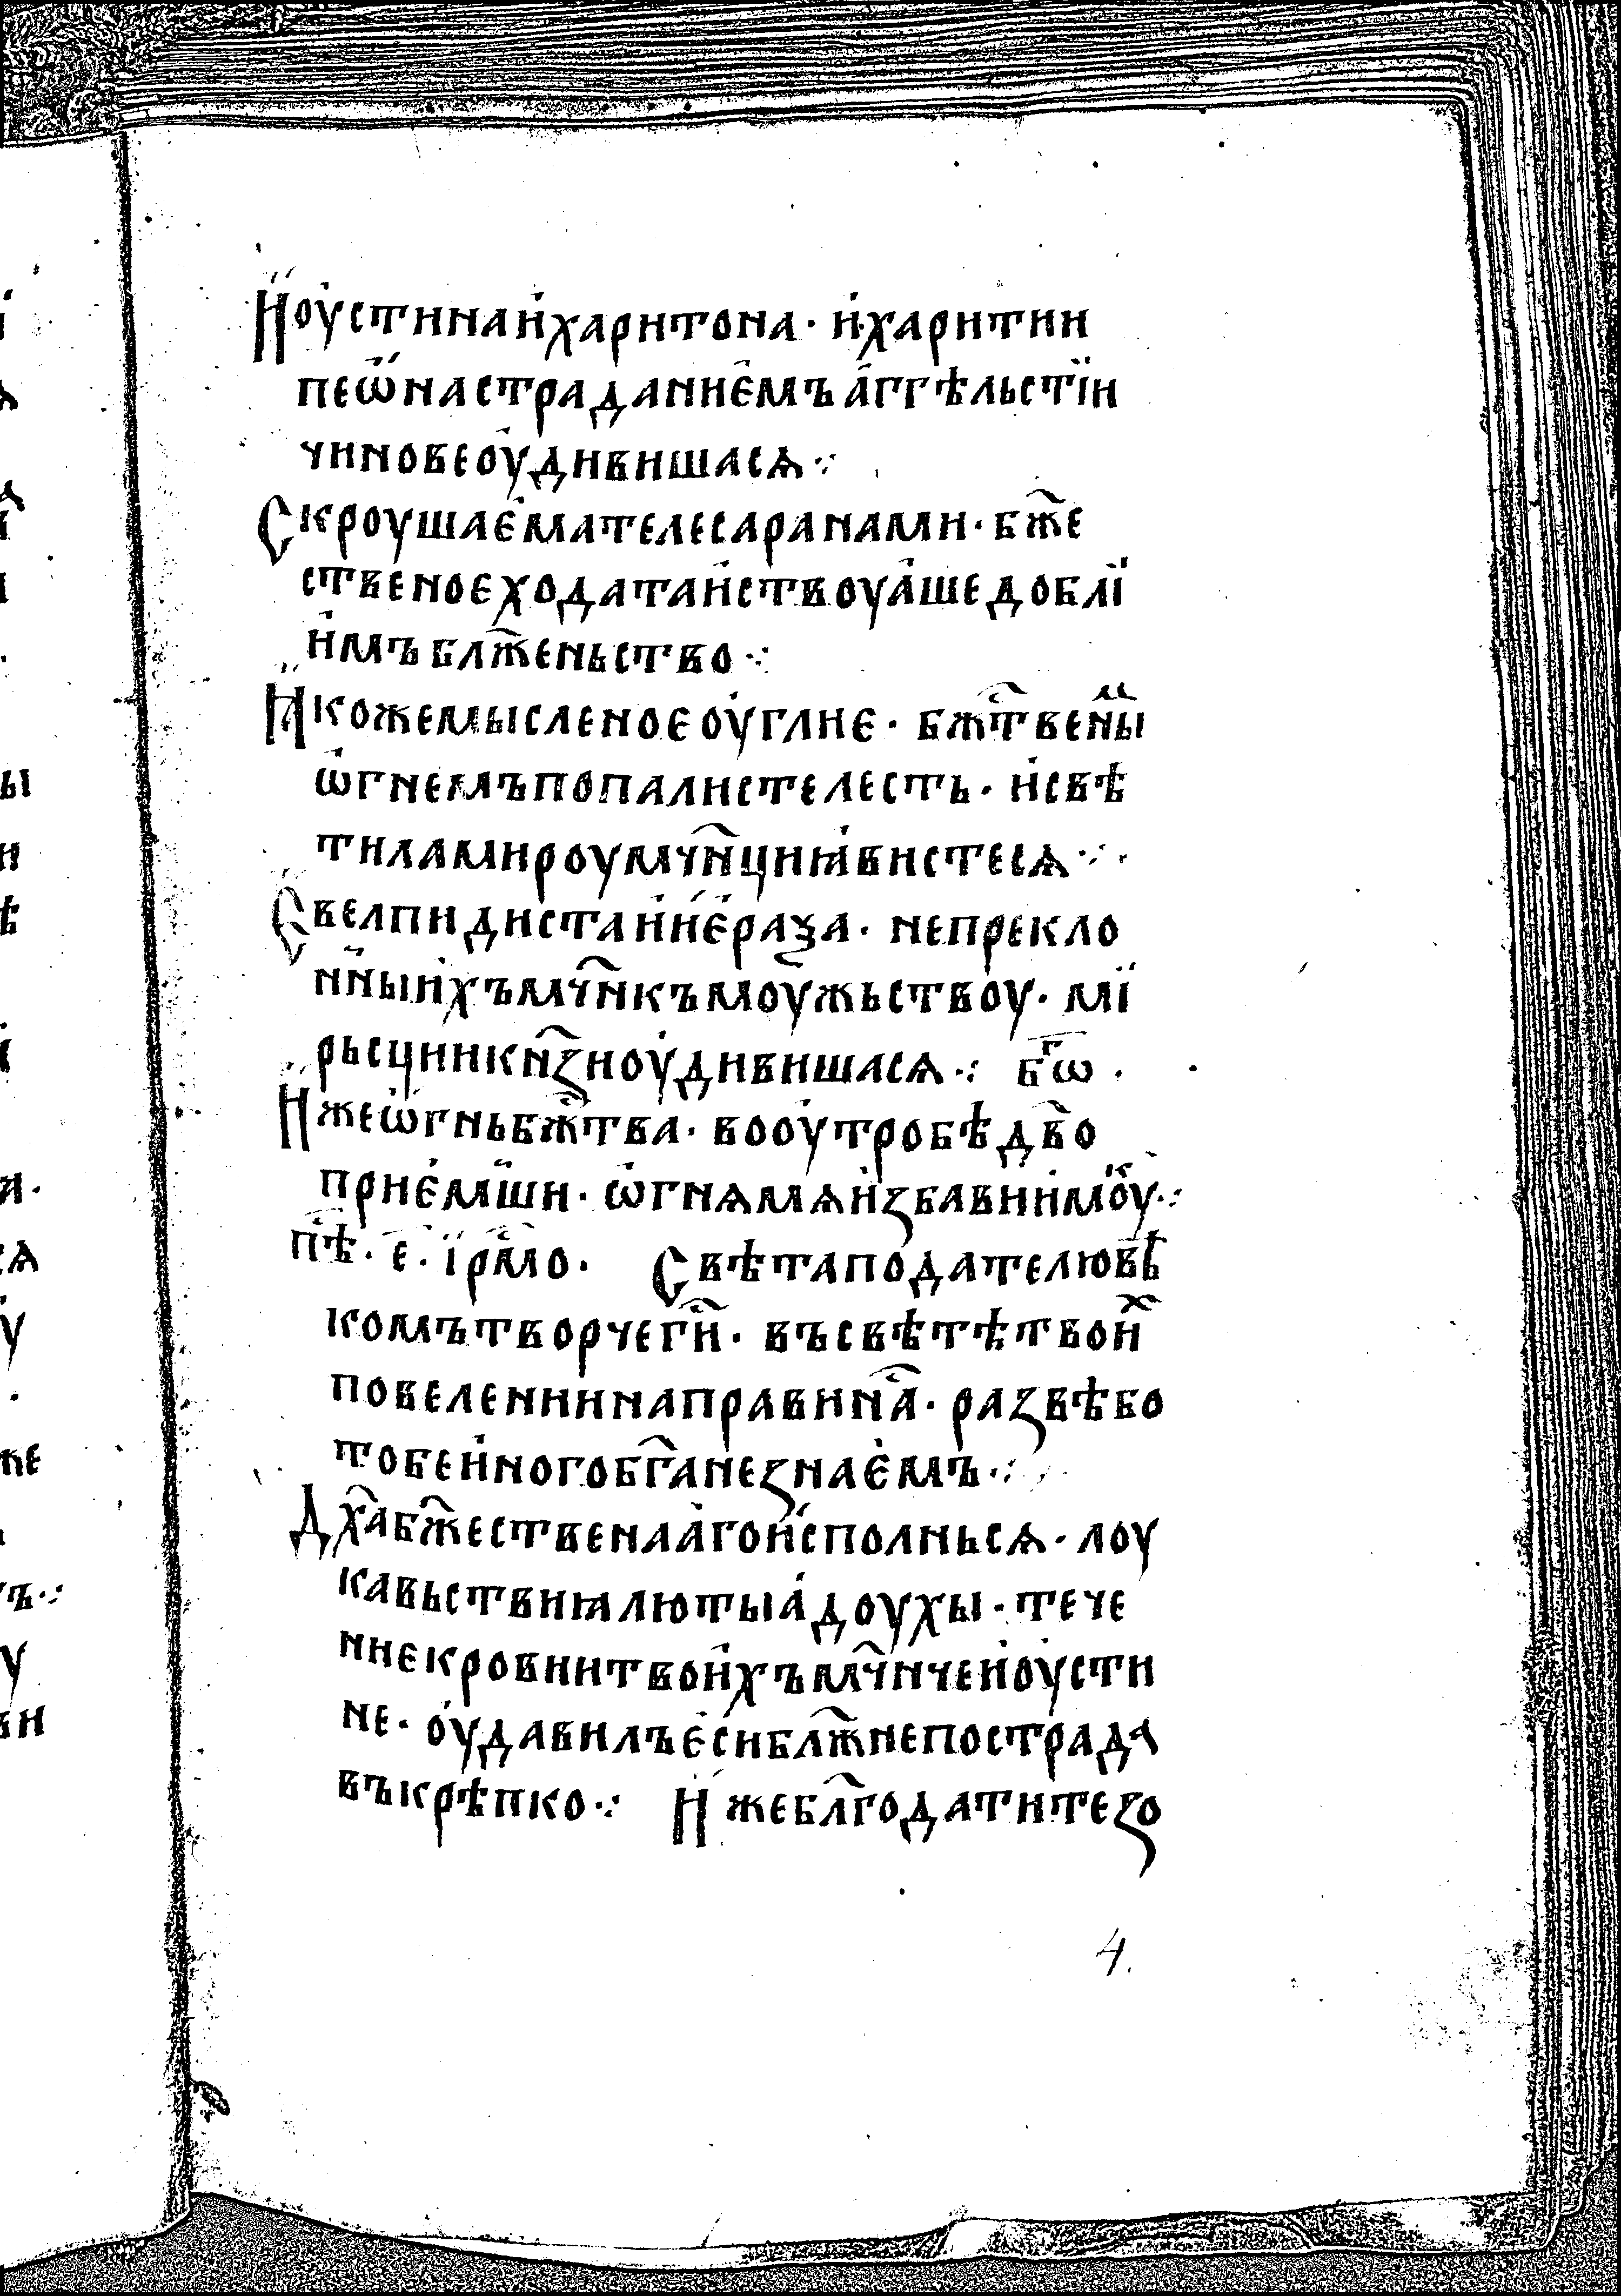 Иоустинаи҆харитона · и҆харитии
пеѡ҆настраданиє҆мъа҆ггѣльстїи
чиновеоудивишасѧ ⁘
Скроушає҆мателесаранами · бж҃е
ственоеходатаи҆ствоуа҆шедоблї
и҆мъблж҃еньство ⁘
Ꙗкожемысленоеоуглие · бжⷭ҇твенⷨы
ѡ҆гнемъпопалистелесть · и҆свѣ
тиламироумч҃нциꙗ҆вистесѧ ⁘
Євелпидистаи҆и҆є҆раѯа · непрекло
нныи҆хъмч҃нкъмоужьствоу · мї
рьсциикнѧ҃зиоудивишасѧ ⁘ бⷢ҇ѡ ·
Ижеѡ҆гньбжⷭ҇тва · вооутробѣдв҃о
приє҆мши · ѡ҆гнѧмѧи҆збавии҆моⷦ҇у ⁘
пⷭ҇ѣ · е · їрмⷭ҇о · Свѣтаподателювѣ
комътворчегⷭ҇и · въсвѣтѣтвоиⷯ
повелениинаправинⷭ҇а · развѣбо
тобеи҆ногобг҃анезнає҆мъ ⁘
Дх҃абж҃ественаа҆гои҆сполньсѧ · лоу
кавьствиꙗлютыа҆доухы · тече
ниекровиитвои҆хъмч҃нчеи҆оусти
не · оудавилъє҆сиблж҃непострада
въкрѣпко ⁘ Ижебл҃годатитезо
4.